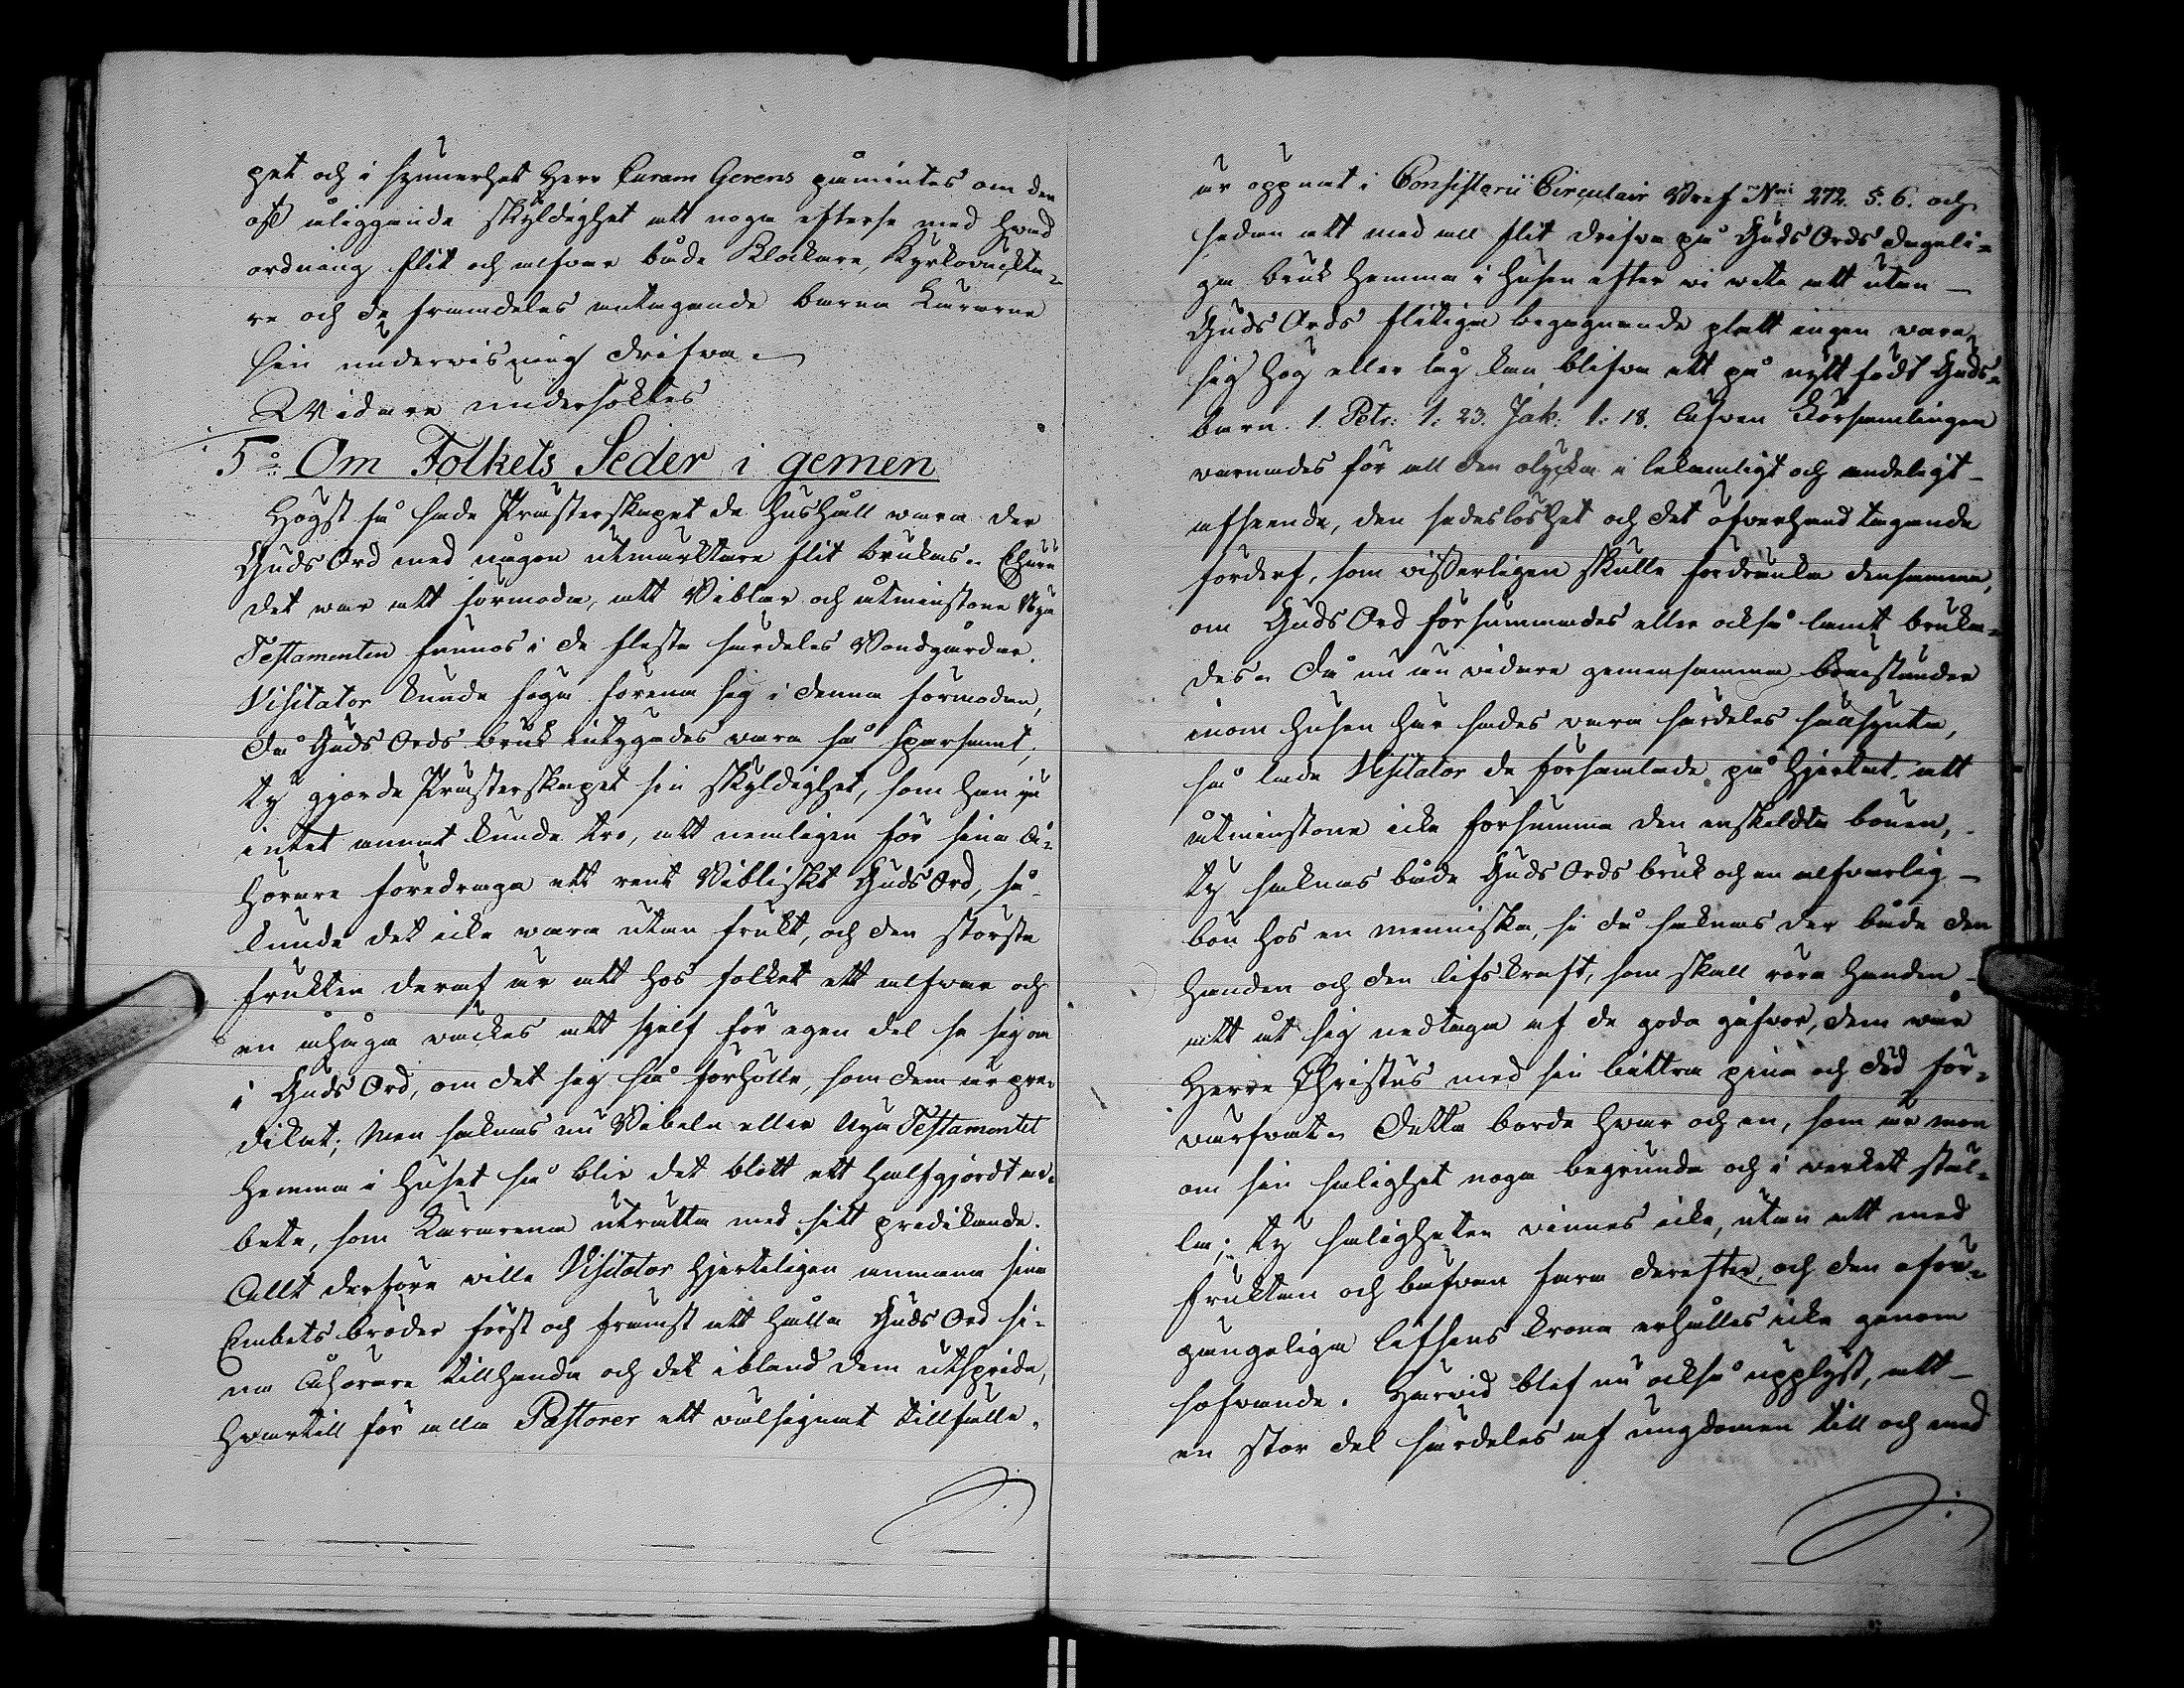 pet och i synnerhet Herr Curam Gerens påmintes om den
osℓ åliggande skyldighet att noga efterse med hvad
ordning flit och alfvar både Klockare, Kyrkovacktа-
re och de framdeles antagande barna Lärarne
sin undervisning drifva.
Widare undersöktes
5:o Om Folkets Seder i gemen
Högst så sade Prästerskapet de hushåll vara der
Guds Ord med någon utmärktare flit brukas. Ehuru
det war att förmoda, att Biblar och åtminstone Nya
Testamenten funnos i de fleste särdeles Bondgårdar.
Visitator kunde föga förena sig i denna förmodan,
då Guds Ords bruk intygades vara så sparsamt,
ty gjorde Prästerskapet sin skyldighet, som han ju
intet annat kunde tro, att nemligen för sina Å-
hörare föredraga ett rent Bibliskt Guds Ord, så
kunde det icke vara utan frukt, och den största
frukten deraf är att hos folket ett alfvar och
en åhåga väckes att sjelf för egen del se sig om
i Guds Ord, om det sig så förhölle, som dem är pre-
dikat; Men saknas nu Bibeln eller Nya Testamentet
hemma i huset så blir det blott ett halfgjordt ar-
bete, som Lärarena uträtta med sitt predikande.
Allt derföre ville Visitator hjerteligen anmana sina
Embetsbröder först och främst att hålla Guds Ord si-
na Åhörare tillhanda och det ibland dem utsprida,
hvartill för alla Pastorer ett välsignat tillfälle
är öppnat i Consistorii Circulair Bref N:ris 272. §. 6. och
sedan att med all flit drifva på Guds Ords dageli-
ga bruk hemma i husen efter vi veta att utan
Guds Ords flitiga begagnande platt ingen vare
sig hög eller låg kan blifva ett på nytt födt Guds
barn. 1. Petr: 1: 23. Jak: 1: 18. Äfven Församlingen
varnades för all den olycka i lekamligt och andeligt
afseende, den sedeslöshet och det öfverhand tagande
förderf, som visserligen skulle fördränka densamma,
om Guds Ord försummades eller också lamt bruka-
des. Då nu än vidare gemensamma bönestunder
inom husen här sades vara särdeles sällsynta,
så lade Visitator de församlade på hjertat att
åtminstone icke försumma den enskildta bönen,
ty saknas både Guds Ords bruk och en alfvarlig
bön hos en menniska, si då saknas der både den
handen och den lifskraft, som skall röra handen
att åt sig nedtaga af de goda gåfvor, dem vår
Herre Christus med sin bittra pina och död för-
värfvat. Detta borde hvar och en, som är mon
om sin salighet noga begrunda och i verket stäl-
la; ty saligheten vinnes icke, utan att med
fruktan och bäfvan fara derefter, och den oför-
gängeliga lifsens krona erhålles icke genom
sofvande. Härvid blef nu också upplyst, att
en stor del särdeles af ungdomen till och med